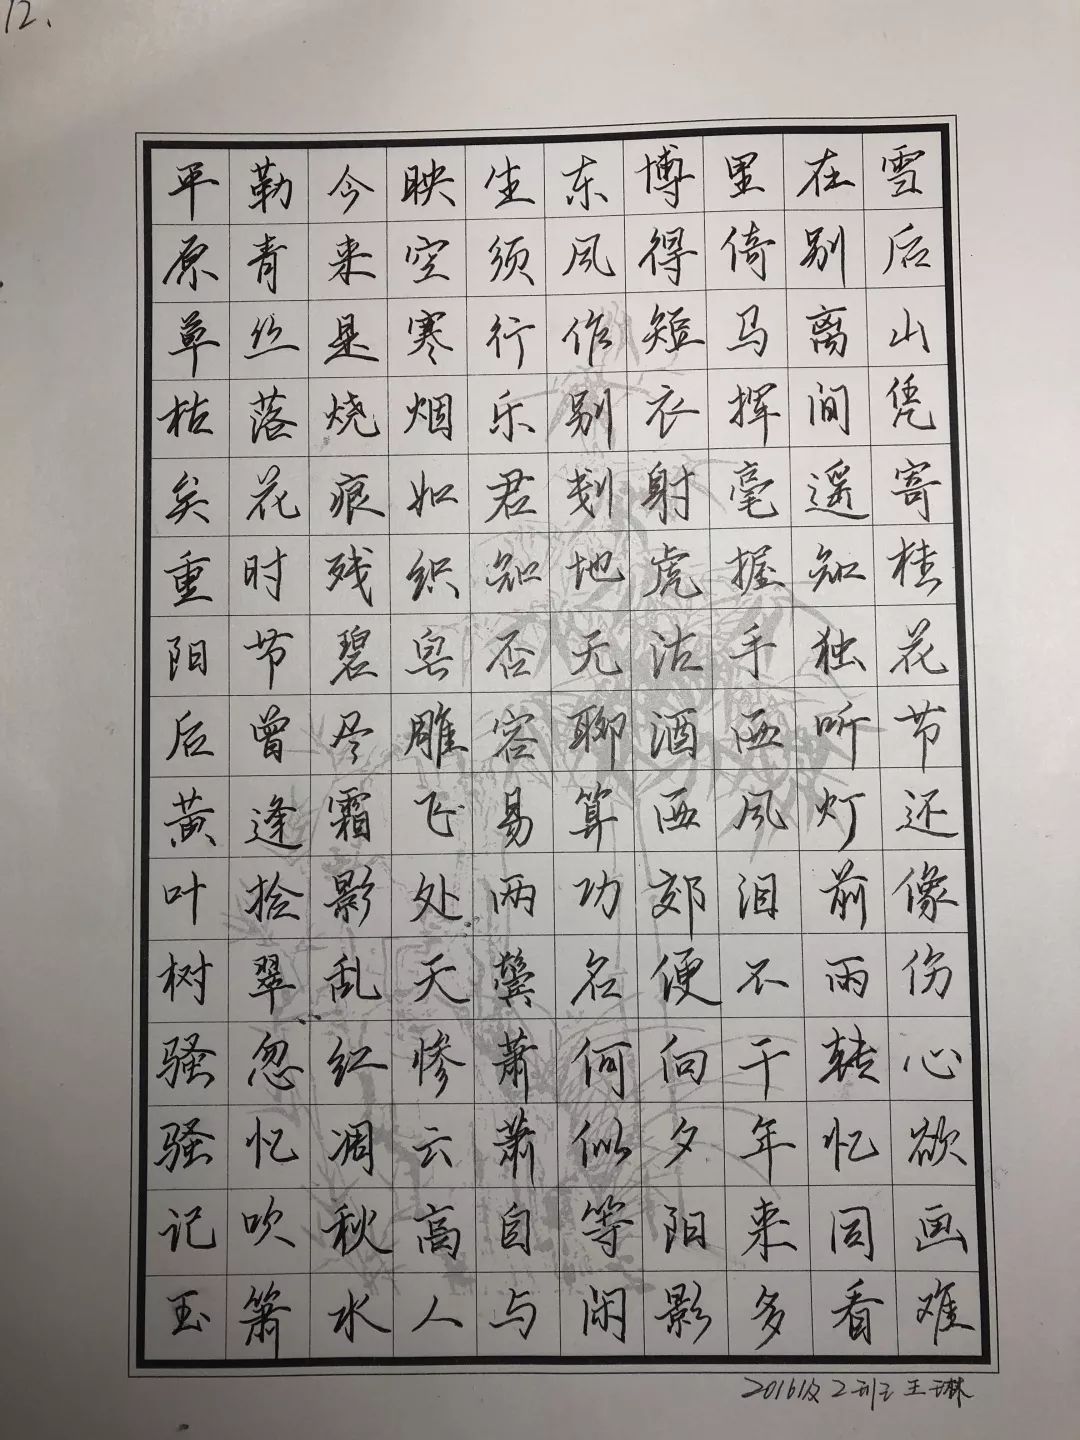 12、
平原草枯矣重阳后黄叶树骚骚记玉
勒青丝落花时节曾逢拾翠忽忆吹箫
今来是烧痕残碧尽霜影乱红凋秋水
映空寒烟如织皂雕飞处天惨云高人
生须行乐君知否容易两鬓萧萧自与
东风作别刬地无聊算功名何似等闲
博得短衣射虎沽酒西郊便向夕阳影
里倚马挥毫握手西风泪不干年来多
在别离间遥知独听灯前雨转忆同看
雪后山凭寄桂花节还像伤心欲画难
2016级2班王琳